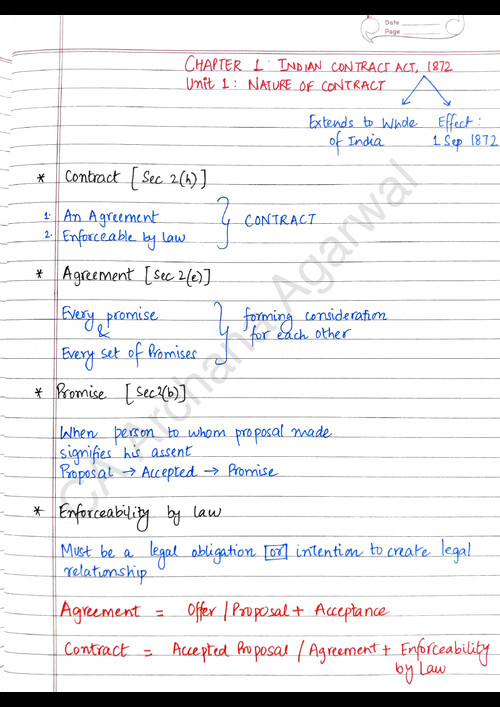 Date
Page
CHAPTER 1: INDIAN CONTRACT ACT, 1872
Unit 1: NATURE OF CONTRACT
Extends to whole Effect:
of India 1 Sep 1872
* Contract [Sec 2(h)]
1. An Agreement
2. Enforceable by law
CONTRACT
* Agreement [Sec 2(e)]
Every promise
&
Every set of Promises
forming consideration
for each other
* Promise [Sec 2(b)]
When person to whom proposal made
signifies his assent
Proposal → Accepted → Promise
* Enforceability by law
Must be a legal obligation [or] intention to create legal
relationship
Agreement = Offer / Proposal + Acceptance
Contract = Accepted Proposal / Agreement + Enforceability
by Law
CA Archana Agarwal